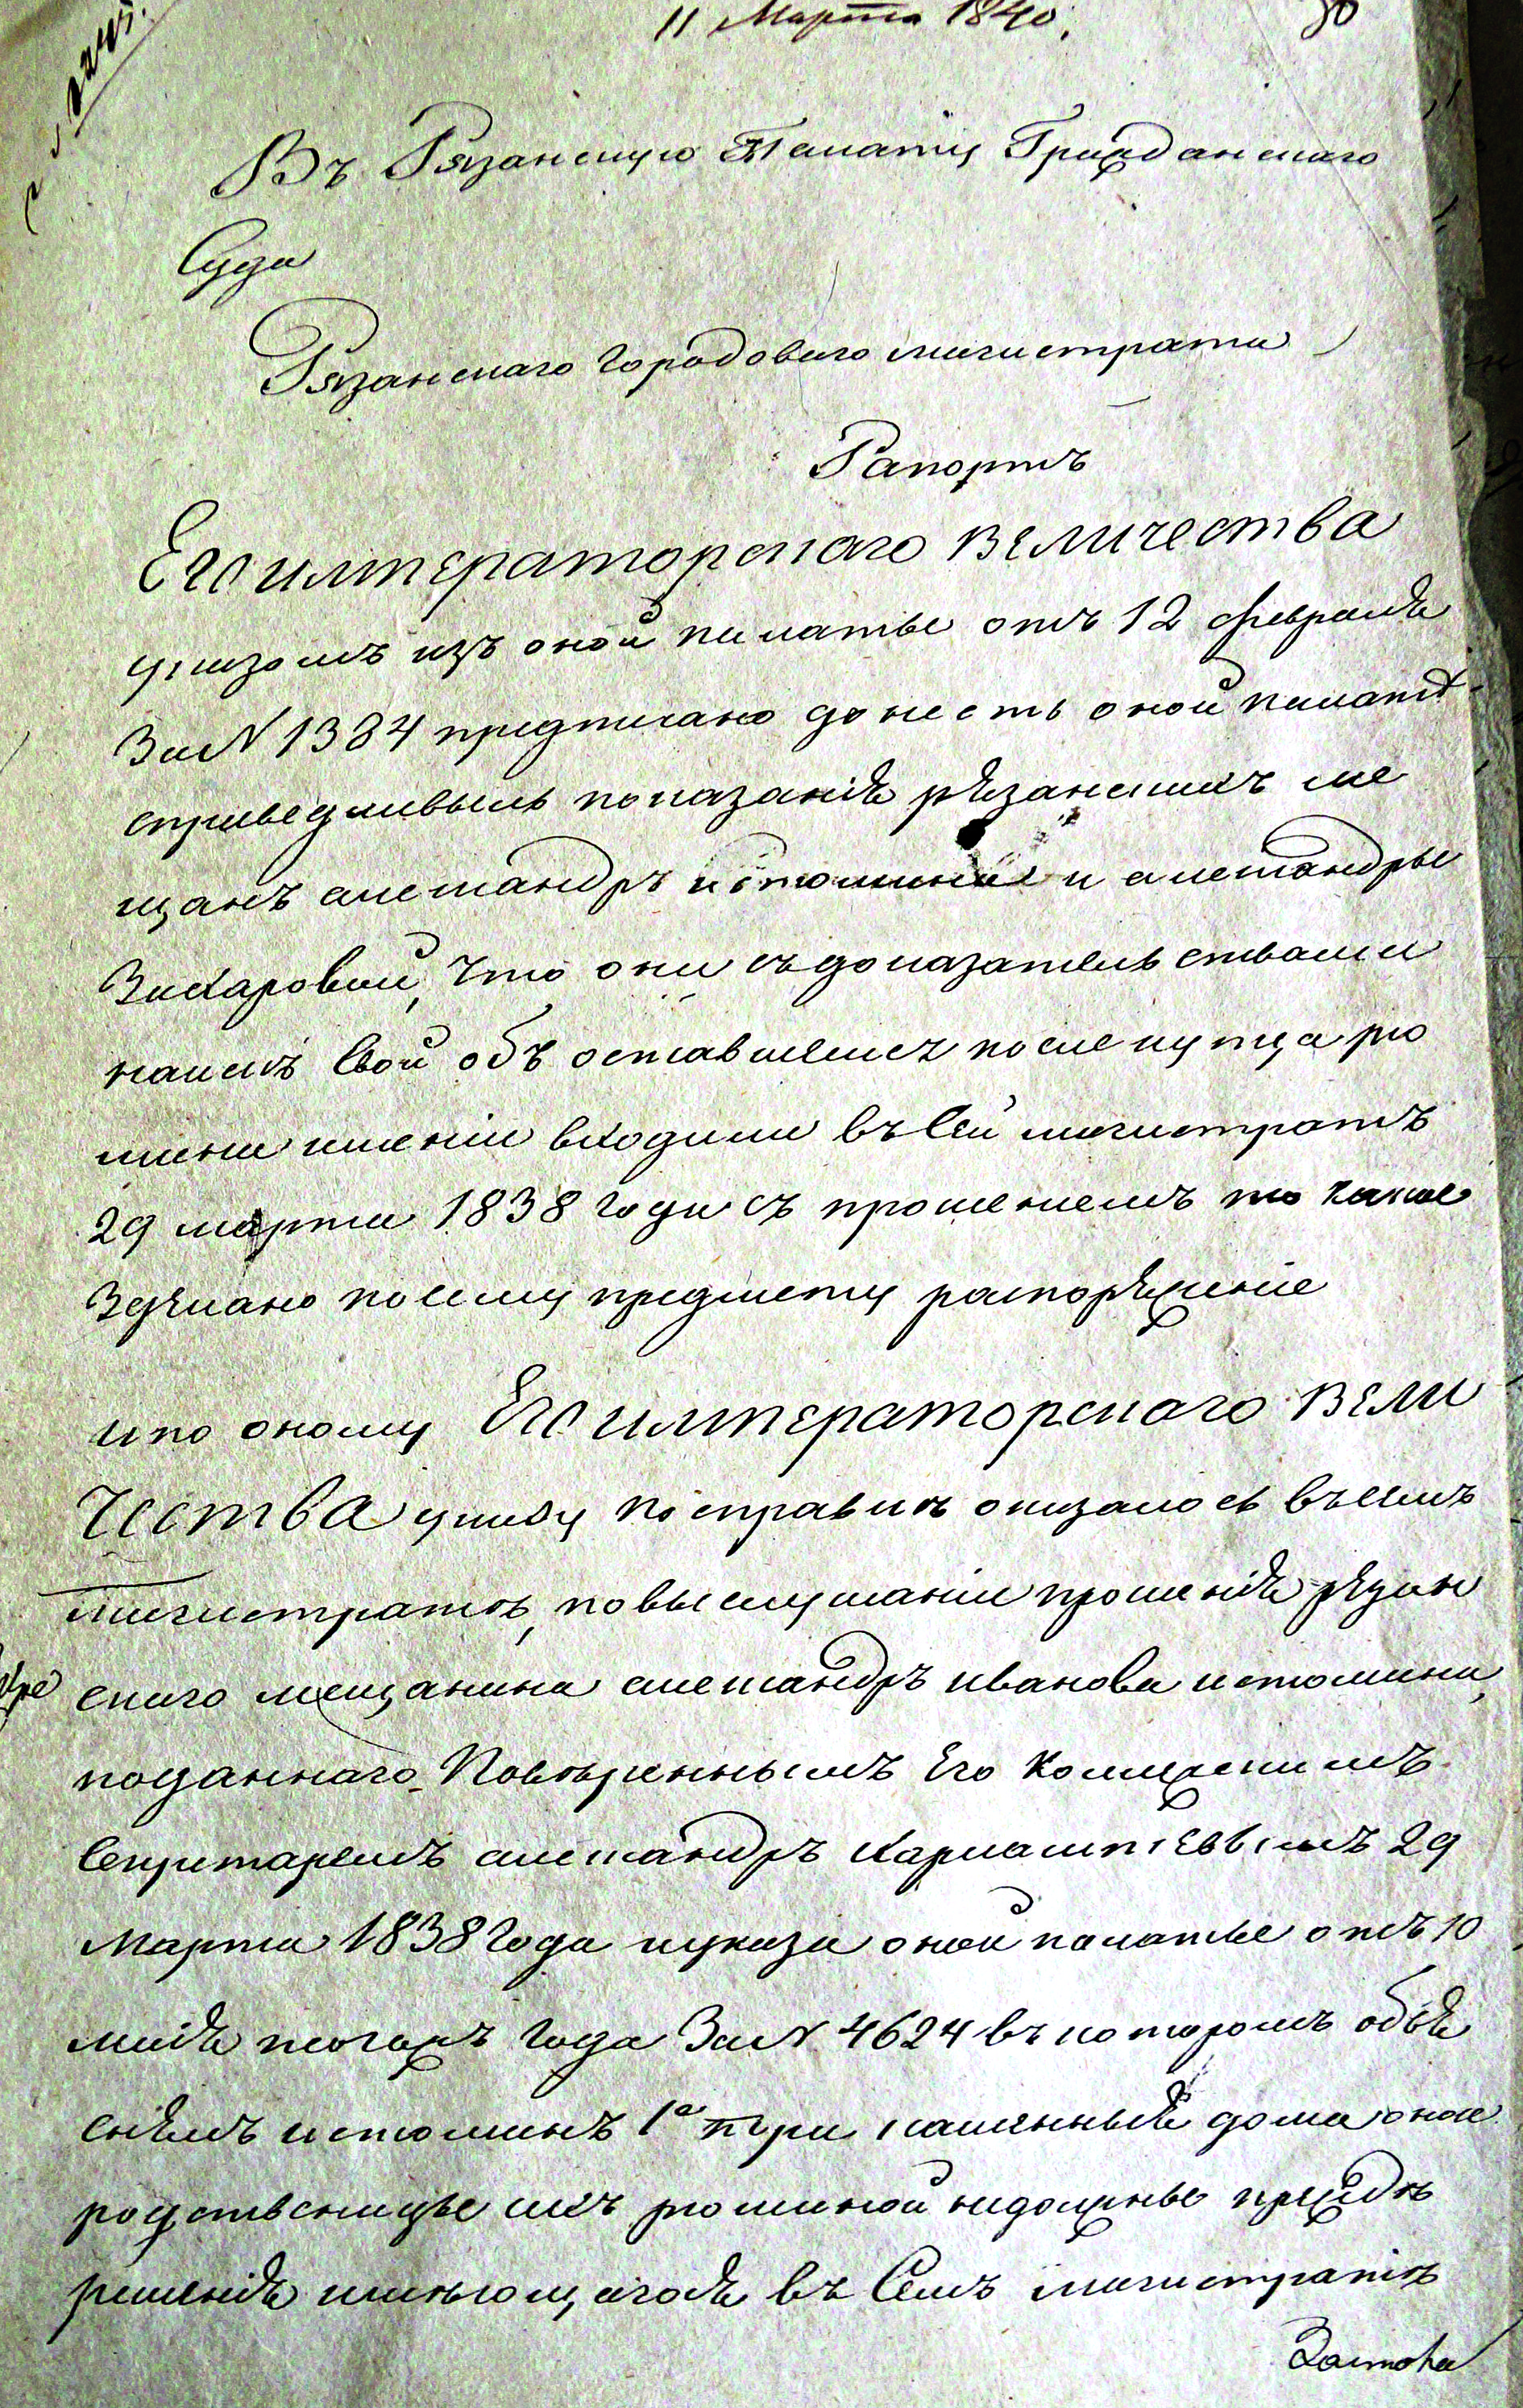 11 Марта 1840.
Въ Рязанскую Палату Гражданскаго
Суда
Рязанскаго Городоваго магистрата
Рапортъ
Его императорскаго величества
указомъ изъ оной палаты отъ 12 февраля
За N 1384 предписано донесть оной палатѣ
справедливыль показаніѣ рѣзанскихъ ме
щанъ александръ истомина и александры
Захаровой, что они съ доказательствами
наслѣ Свои объ оставшемся после купца рю
мина имении входили въ Сей магистратъ
29 марта 1838 года съ прошениемъ то какое
Здѣлано по сему предмету распорѣжение
и по оному Его императорскаго вели
чества указу по справкѣ оказалось въ семъ
магистратѣ, по выслушании прошениѣ рѣзан
скаго мещанина александръ иванова истомина,
поданнаго Повѣреннымъ Его Коллежскимъ
Секритаремъ александръ Харлампіевымъ 29
Марта 1838 Года и указа оной палаты отъ 10
маиѣ тогожъ года За N 4624 въ которомъ объѣ
снѣлъ истоминъ 1е три каменныѣ дома оная
родственницы ихъ рюминой недолжны прежде
решениѣ имеющагосѣ въ Семъ магистратѣ